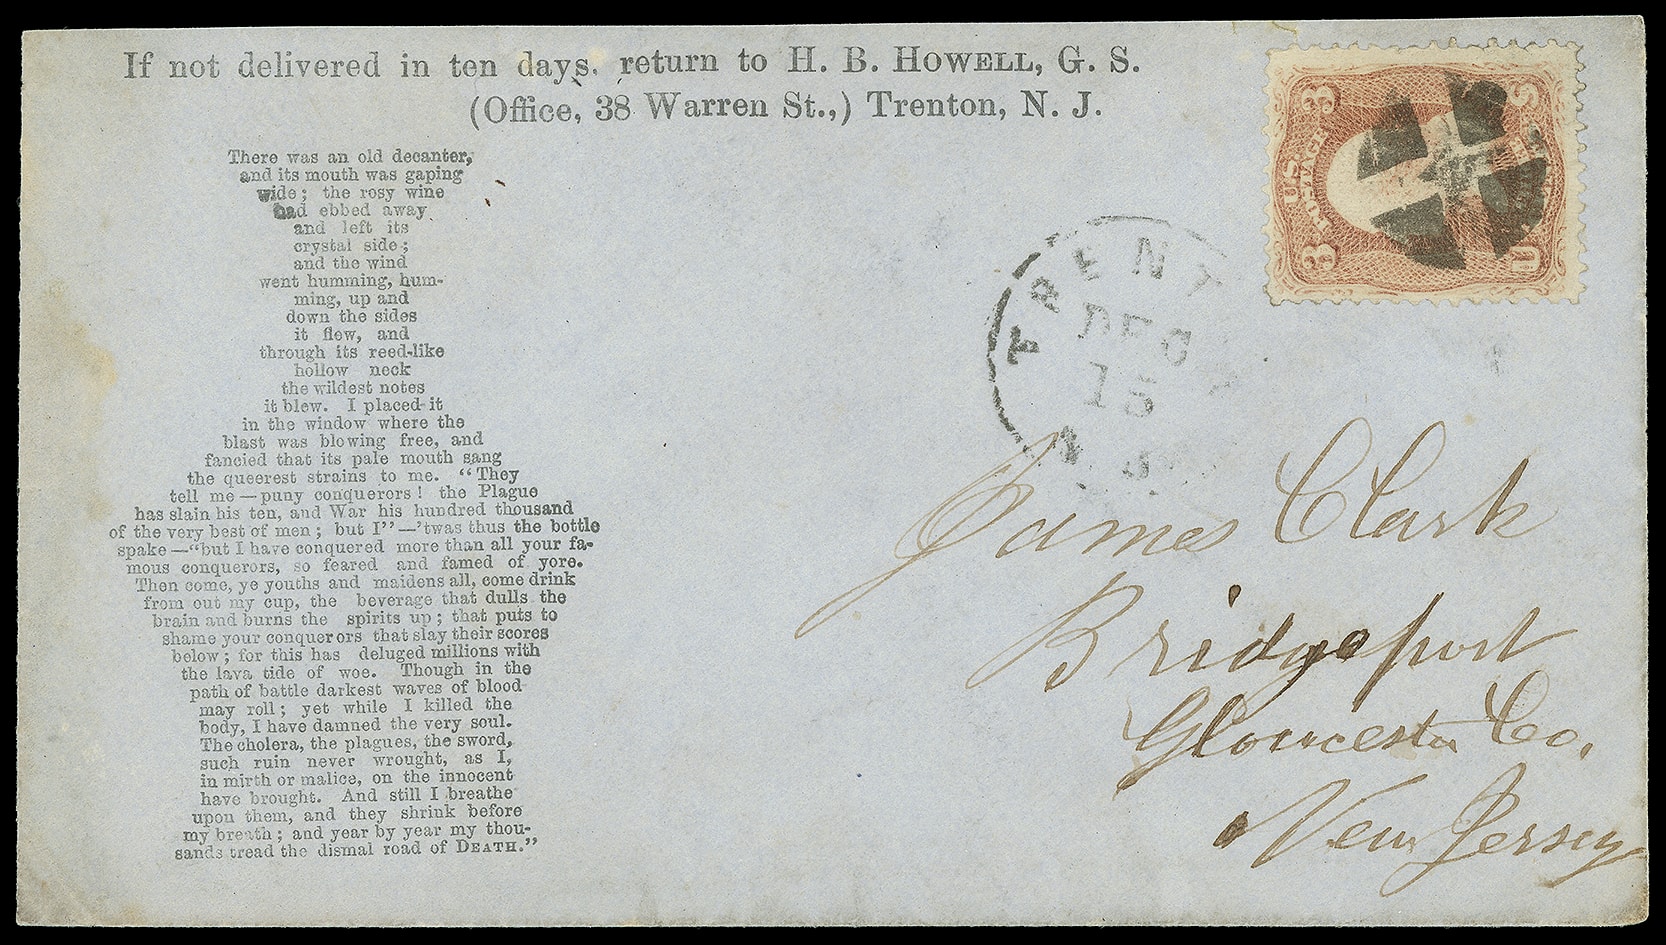 If not delivered in ten days, return to H. B. HOWELL, G. S.
(Office, 38 Warren St.,) Trenton, N. J.
There was an old decanter,
and its mouth was gaping
wide; the rosy wine
had ebbed away
and left its
crystal side;
and the wind
went humming, hum-
ming, up and
down the sides
it flew, and
through its reed-like
hollow neck
the wildest notes
it blew. I placed it
in the window where the
blast was blowing free, and
fancied that its pale mouth sang
the queerest strains to me. “They
tell me—puny conquerors! the Plague
has slain his ten, and War his hundred thousand
of the very best of men; but I”—’twas thus the bottle
spake—“but I have conquered more than all your fa-
mous conquerors, so feared and famed of yore.
Then come, ye youths and maidens all, come drink
from out my cup, the beverage that dulls the
brain and burns the spirits up; that puts to
shame your conquerors that slay their scores
below; for this has deluged millions with
the lava tide of woe. Though in the
path of battle darkest waves of blood
may roll; yet while I killed the
body, I have damned the very soul.
The cholera, the plagues, the sword,
such ruin never wrought, as I,
in mirth or malice, on the innocent
have brought. And still I breathe
upon them, and they shrink before
my breath; and year by year my thou-
sands tread the dismal road of DEATH.”
TRENT
DEC
15
N. J.
3 3
U.S. POSTAGE
U S
James Clark
Bridgeport
Gloucester Co.
New Jersey